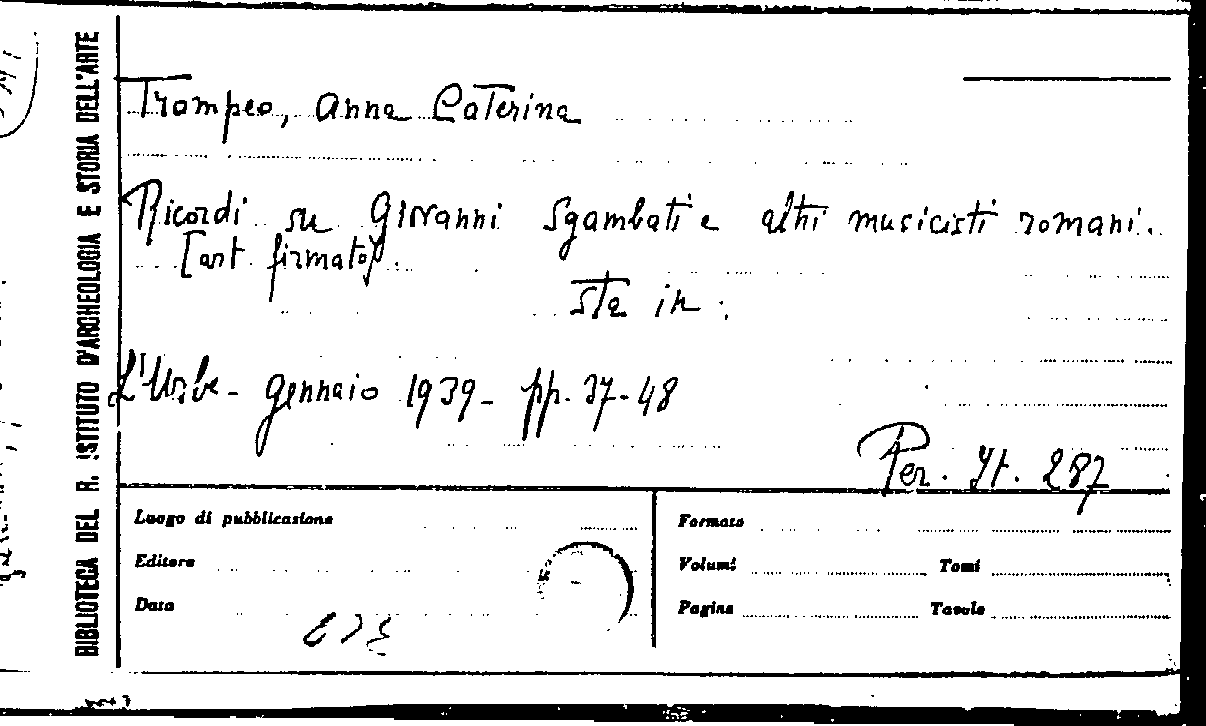 BIBLIOTECA DEL R. ISTITUTO D'ARCHEOLOGIA E STORIA DELL'ARTE
Trompeo, Anna Caterina
Ricordi su Giovanni Sgambati e altri musicisti romani.
[art. firmato].
sta in:
L'Urbe - gennaio 1939 - pp. 37-48
Per. It. 287
Luogo di pubblicazione
Editore
Data
Formato
Volumi Tomi
Pagine Tavole